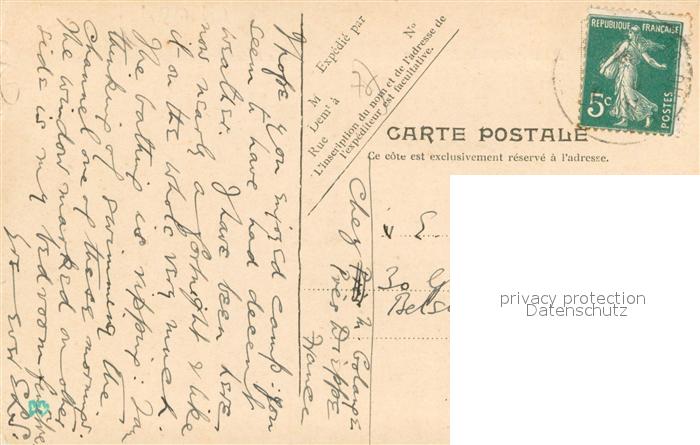 I hope you enjoyed camp. You
seem to have had decent
weather. I have been here
now nearly a fortnight & like
it on the whole very much.
The bathing is ripping. I am
thinking of swimming the
Channel one of these mornings.
The window marked on other
side is my bedroom
Yrs ever
Expédié par
M
Demt à
Rue
No
L'inscription du nom et de l'adresse de
l'expéditeur est facultative.
Chez M.
Près Dieppe
France
REPUBLIQUE FRANÇAISE
5c
POSTES
CARTE POSTALE
Ce côte est exclusivement réservé à l'adresse.
E.
30 G
Bels
privacy protection
Datenschutz